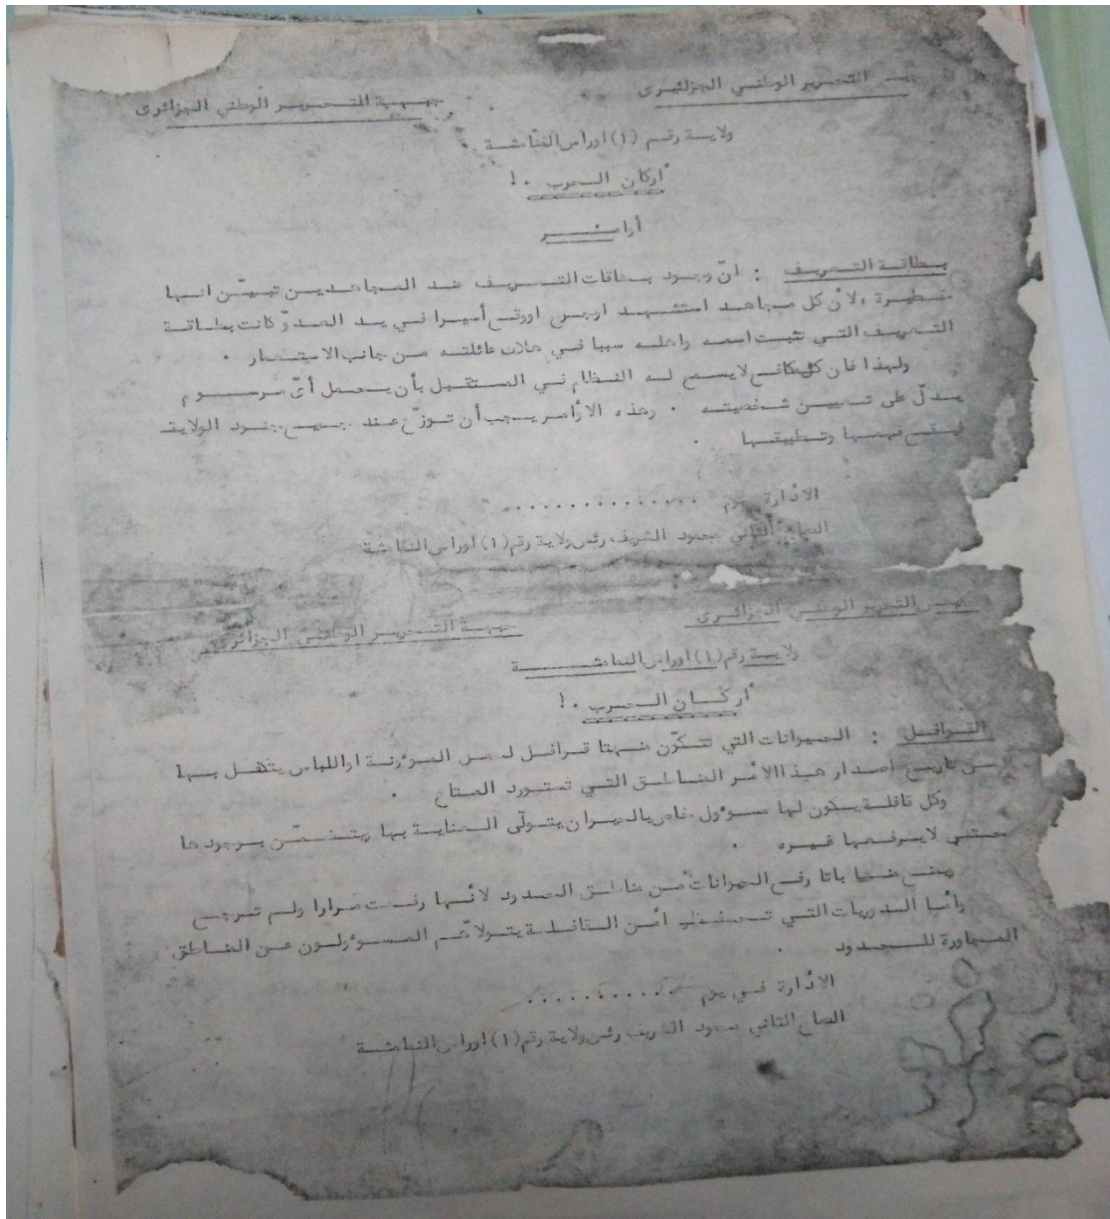 جيش التحرير الوطني الجزائري
جبهة التحرير الوطني الجزائري
ولاية رقم (١) اوراس النمامشة
أركان الحرب . !
أوامر
بطاقة التعريف : انّ وجود بطاقات التعريف عند المجاهدين تبيّن انها
خطيرة ، لأن كل مجاهد استشهد اوجرح اووقع أسيرا في يد العدوّ كانت بطاقة
التعريف التي تثبت اسمه واهله سببا في هلاك عائلته من جانب الاستعمار .
ولهذا فان كل مكافح لايسمح له النظام في المستقبل بأن يحمل أيّ مرسوم
يدلّ على تعيين شخصيته . وهذه الأوامر يجب أن توزّع عند جميع جنود الولاية
ليقع فهمها وتطبيقها .
الادارة يوم ...............
الصاغ الثاني محمود الشريف رئس ولاية رقم (١) اوراس النمامشة
جيش التحرير الوطني الجزائري
جبهة التحرير الوطني الجزائري
ولاية رقم (١) اوراس النمامشة
أركان الحرب . !
القوافل : الحيوانات التي تتكوّن منها قوافل لحمل المؤونة او اللباس يتكفل بها
من تاريخ اصدار هذا الأمر المناطق التي تستورد المتاع .
وكل قافلة يكون لها مسؤول خاص بالحيوان يتولّى العناية بها ويتضمّن بوجودها
حتى لايرفعها غيره .
ويمنع منعا باتا رفع الحيوانات من مناطق الحدود لأنها رفعت مرارا ولم ترجع
وأما الدوريات التي تحفظ أمن القافلة يتولاّهم المسؤولون عن المناطق
المجاورة للحدود .
الادارة في يوم ...........
الصاغ الثاني محمود الشريف رئس ولاية رقم (١) اوراس النمامشة